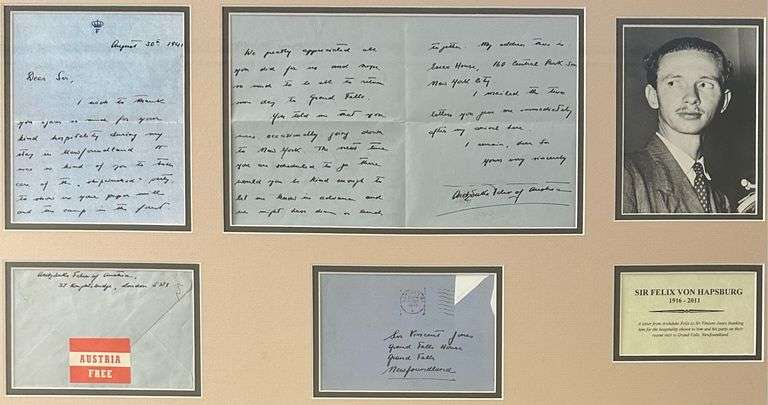 F
August 30th 1941
Dear Sir,
I wish to thank
you again so much for your
kind hospitality during my
stay in Newfoundland. It
was so kind of you to take
care of the "shipwrecked" party,
to show us your paper mill
and the camp in the forest
We greatly appreciated all
you did for us and hope
so much to be able to return
one day to Grand Falls.
You told me that you
were occasionally going down
to New York. The next time
you are scheduled to go there
would you be kind enough to
let me know in advance and
we might have dinner or lunch
together. My address there is
Essex House 160 Central Park
New York City
I mailed the two
letters you gave me immediately
after my arrival here.
I remain, dear Sir
Yours very sincerely
Archduke Felix of Austria
Archduke Felix of Austria,
Knightsbridge, London
AUSTRIA
FREE
Sir Vincent Jones
Grand Falls House
Grand Falls
Newfoundland
SIR FELIX VON HAPSBURG
1916 - 2011
A letter from Archduke Felix to Sir Vincent Jones thanking
him for the hospitality shown to him and his party on their
recent visit to Grand Falls, Newfoundland.